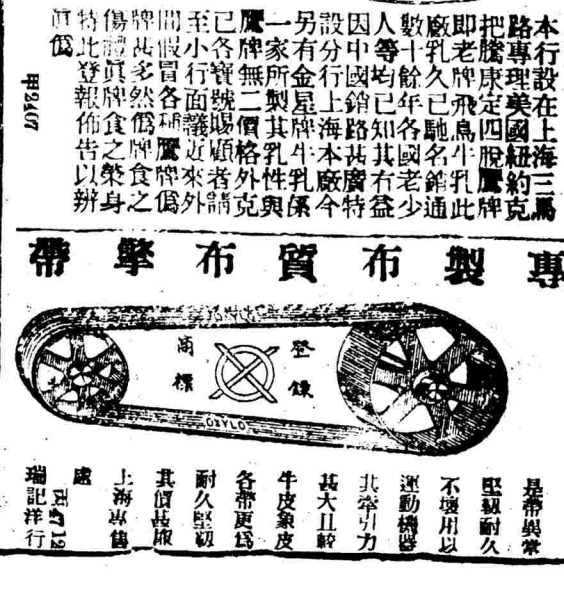 本行設在上海三馬
路專理美國紐約克
把騰康定四脫鷹牌
即老牌飛鳥牛乳此
廠乳久已馳名銷通
數十餘年各國老少
人等均已知其有益
因中國銷路甚廣特
設分行上海本廠今
另有金星牌牛乳係
一家所製其乳性與
鷹牌無二價格外克
已各寶號賜顧者請
至小行面議近來外
間假冒各種鷹牌偽
牌甚多然偽牌食之
傷體真牌食之榮身
特此登報佈告以辨
真偽
甲2407
專製布質布擎帶
登錄
商標
OXYLO
是帶異常
堅韌耐久
不壞用以
運動機器
其牽引力
甚大且較
牛皮象皮
各帶更為
耐久堅韌
其價甚
上海專售
處
瑞記洋行